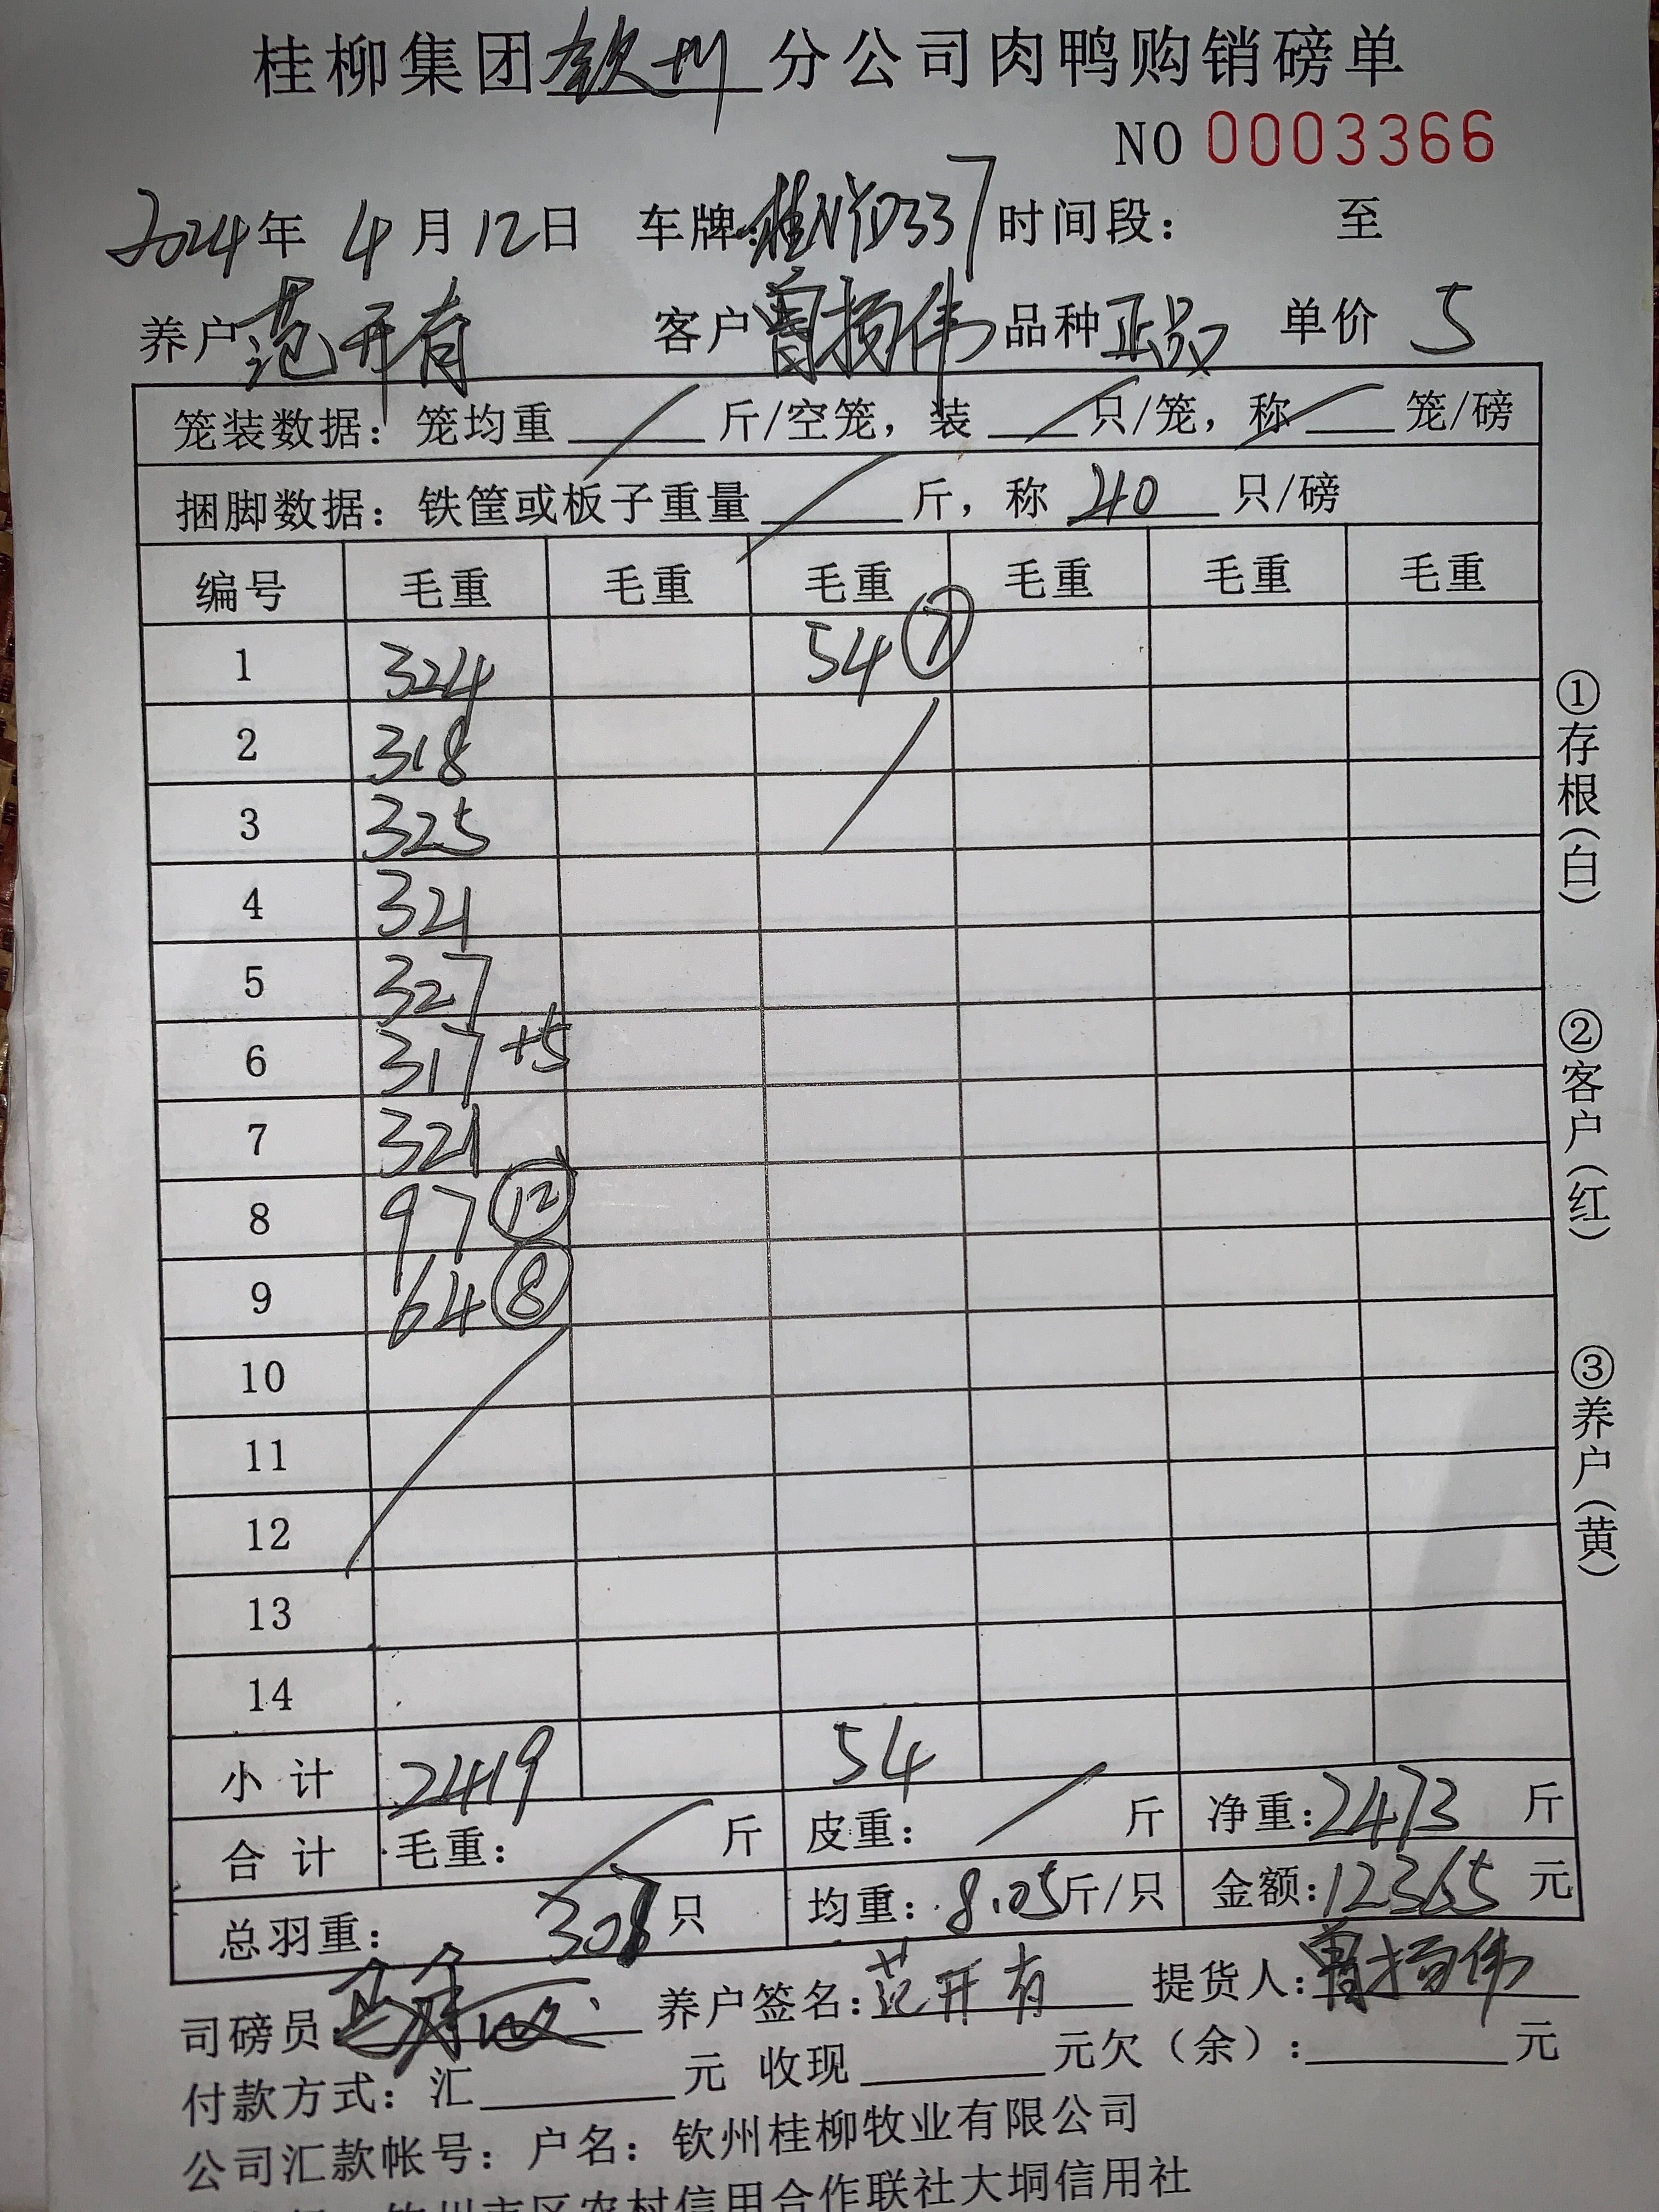 桂柳集团钦州分公司肉鸭购销磅单
NO 0003366
2024年 4月 12日 车牌:桂NYD337 时间段: 至
养户 范开有 客户 曾扬伟 品种 正品 单价 5
笼装数据:笼均重 / 斤/空笼,装 / 只/笼,称 / 笼/磅
捆脚数据:铁筐或板子重量 / 斤,称 40 只/磅
编号 毛重 毛重 毛重 毛重 毛重 毛重
1 324 54 ⑦
2 318
3 325
4 321
5 327
6 317 +5
7 321
8 97 ⑫
9 64 ⑧
10
11
12
13
14
小计 2419 54
合计 毛重: / 斤 皮重: / 斤 净重:2473 斤
总羽重: 307 只 均重:8.05斤/只 金额:12365 元
司磅员: 养户签名:范开有 提货人:曾扬伟
付款方式:汇 元 收现 元欠(余): 元
公司汇款帐号:户名:钦州桂柳牧业有限公司
钦州市区农村信用合作联社大垌信用社
①存根(白)
②客户(红)
③养户(黄)